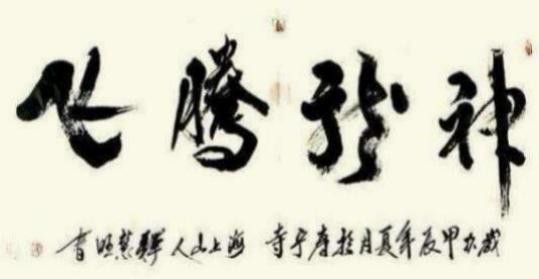 神龍騰飛
歲次甲辰年夏月於寺 海上山人釋慧書